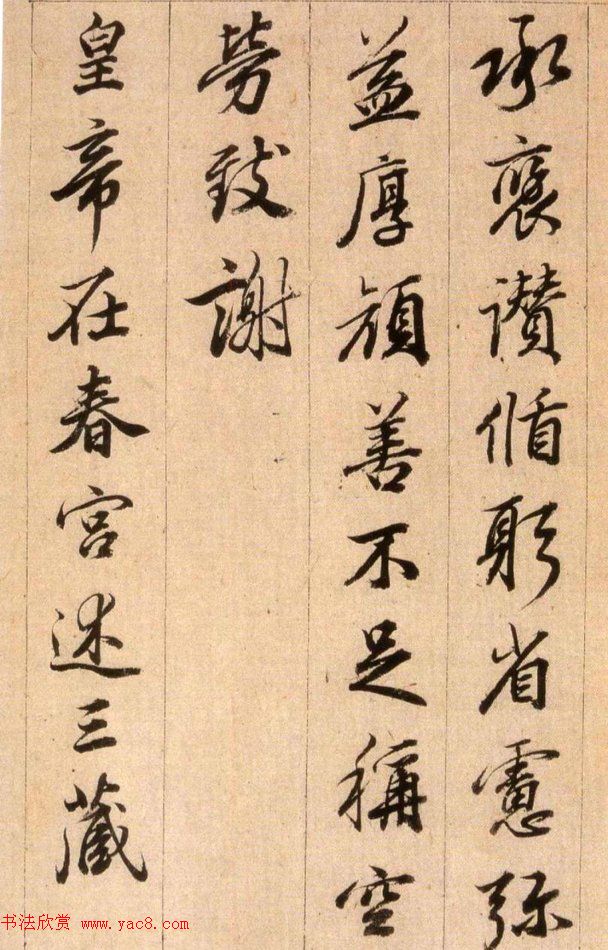 承褒讃循躬省慮弥
益厚顔善不足稱空
勞致謝
皇帝在春宮述三藏
书法欣赏 www.yac8.com